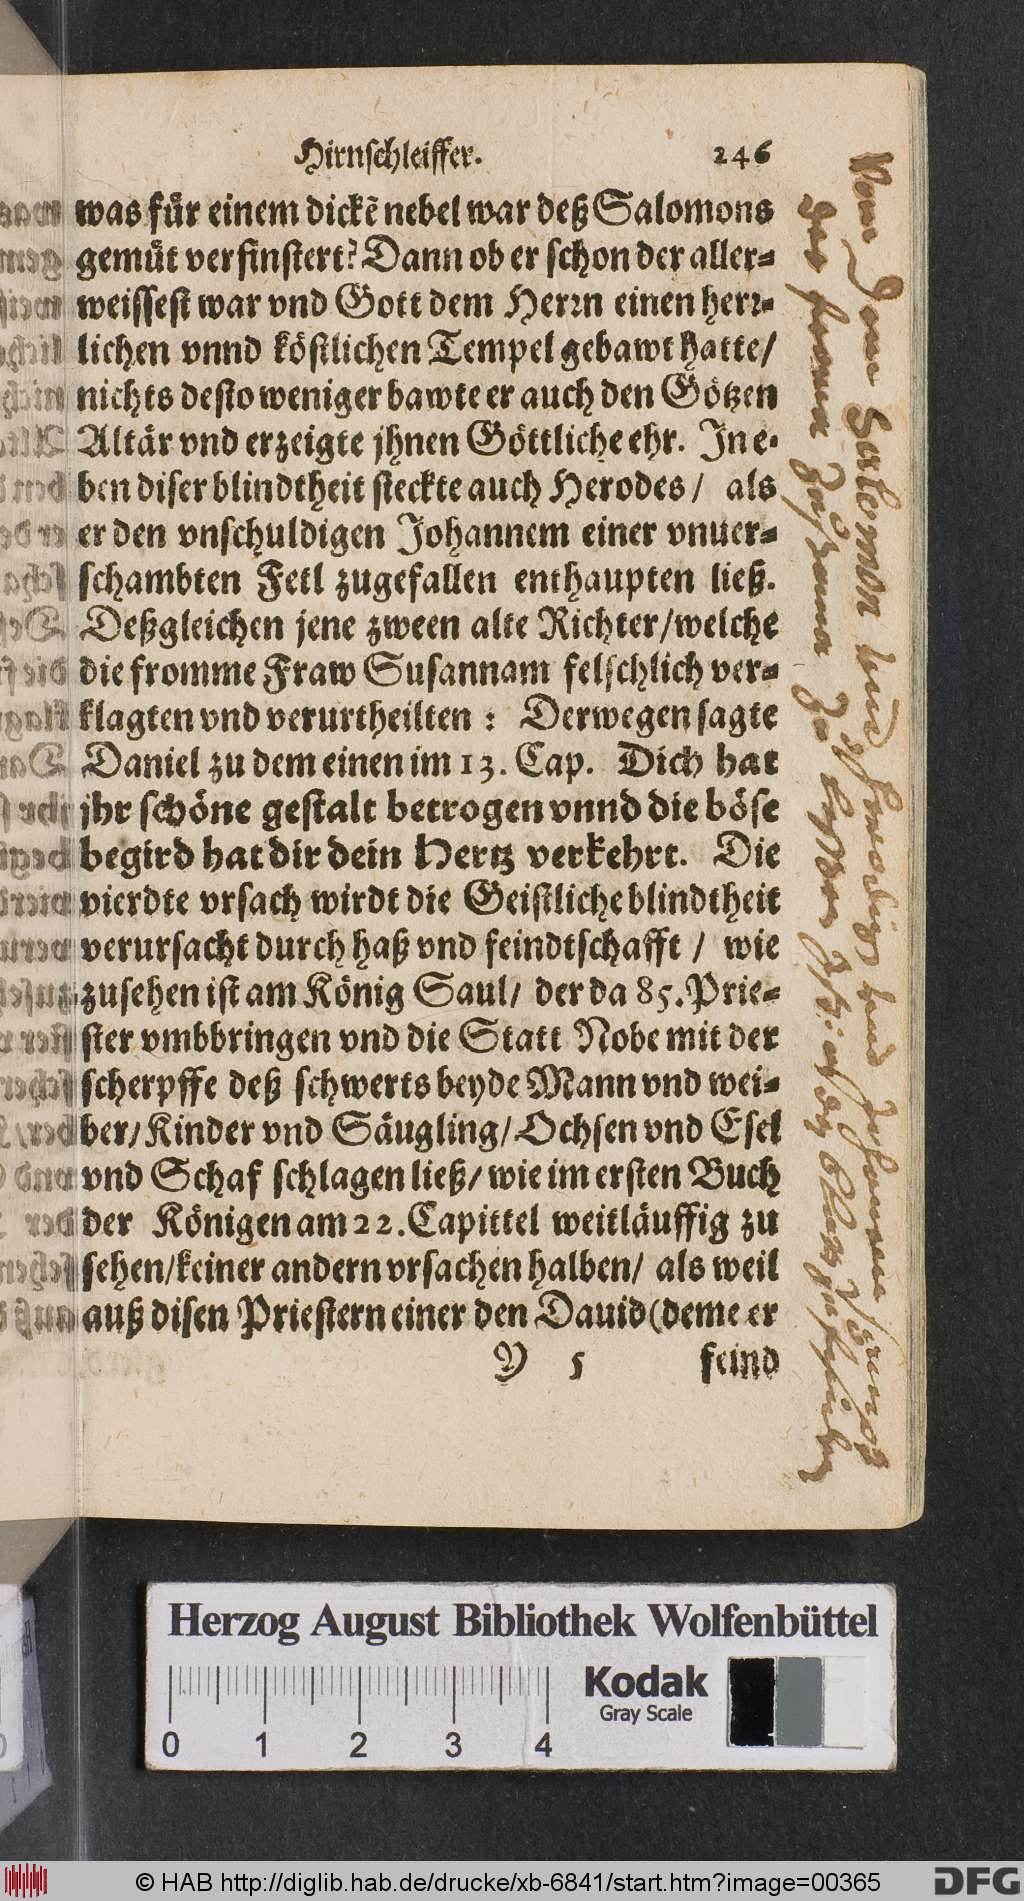 Hirnschleiffer. 246
was für einem dickẽ nebel war deß Salomons
gemüt verfinstert? Dann ob er schon der aller-
weissest war vnd Gott dem Herrn einen herr-
lichen vnnd köstlichen Tempel gebawt hatte/
nichts desto weniger bawte er auch den Götzen
Altär vnd erzeigte jhnen Göttliche ehr. In e-
ben diser blindtheit steckte auch Herodes/ als
er den vnschuldigen Johannem einer vnuer-
schambten Fetl zugefallen enthaupten ließ.
Deßgleichen jene zween alte Richter/welche
die fromme Fraw Susannam felschlich ver-
klagten vnd verurtheilten : Derwegen sagte
Daniel zu dem einen im 13. Cap. Dich hat
jhr schöne gestalt betrogen vnnd die böse
begird hat dir dein Hertz verkehrt. Die
vierdte vrsach wirdt die Geistliche blindtheit
verursacht durch haß vnd feindtschafft / wie
zusehen ist am König Saul/ der da 85. Prie-
ster vmbbringen vnd die Statt Nobe mit der
scherpffe deß schwerts beyde Mann vnd wei-
ber/Kinder vnd Säugling/Ochsen vnd Esel
vnd Schaf schlagen ließ/wie im ersten Buch
der Königen am 22. Capittel weitläuffig zu
sehen/keiner andern vrsachen halben/ als weil
auß disen Priestern einer den Dauid (deme er
Y 5 feind
Salomon
Herzog August Bibliothek Wolfenbüttel
Kodak
Gray Scale
0 1 2 3 4
© HAB http://diglib.hab.de/drucke/xb-6841/start.htm?image=00365
DFG